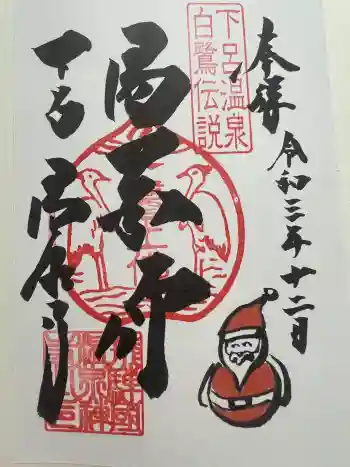 奉拝 令和三年十二月
下呂温泉
白鷺伝説
湯薬師
下呂 温泉寺